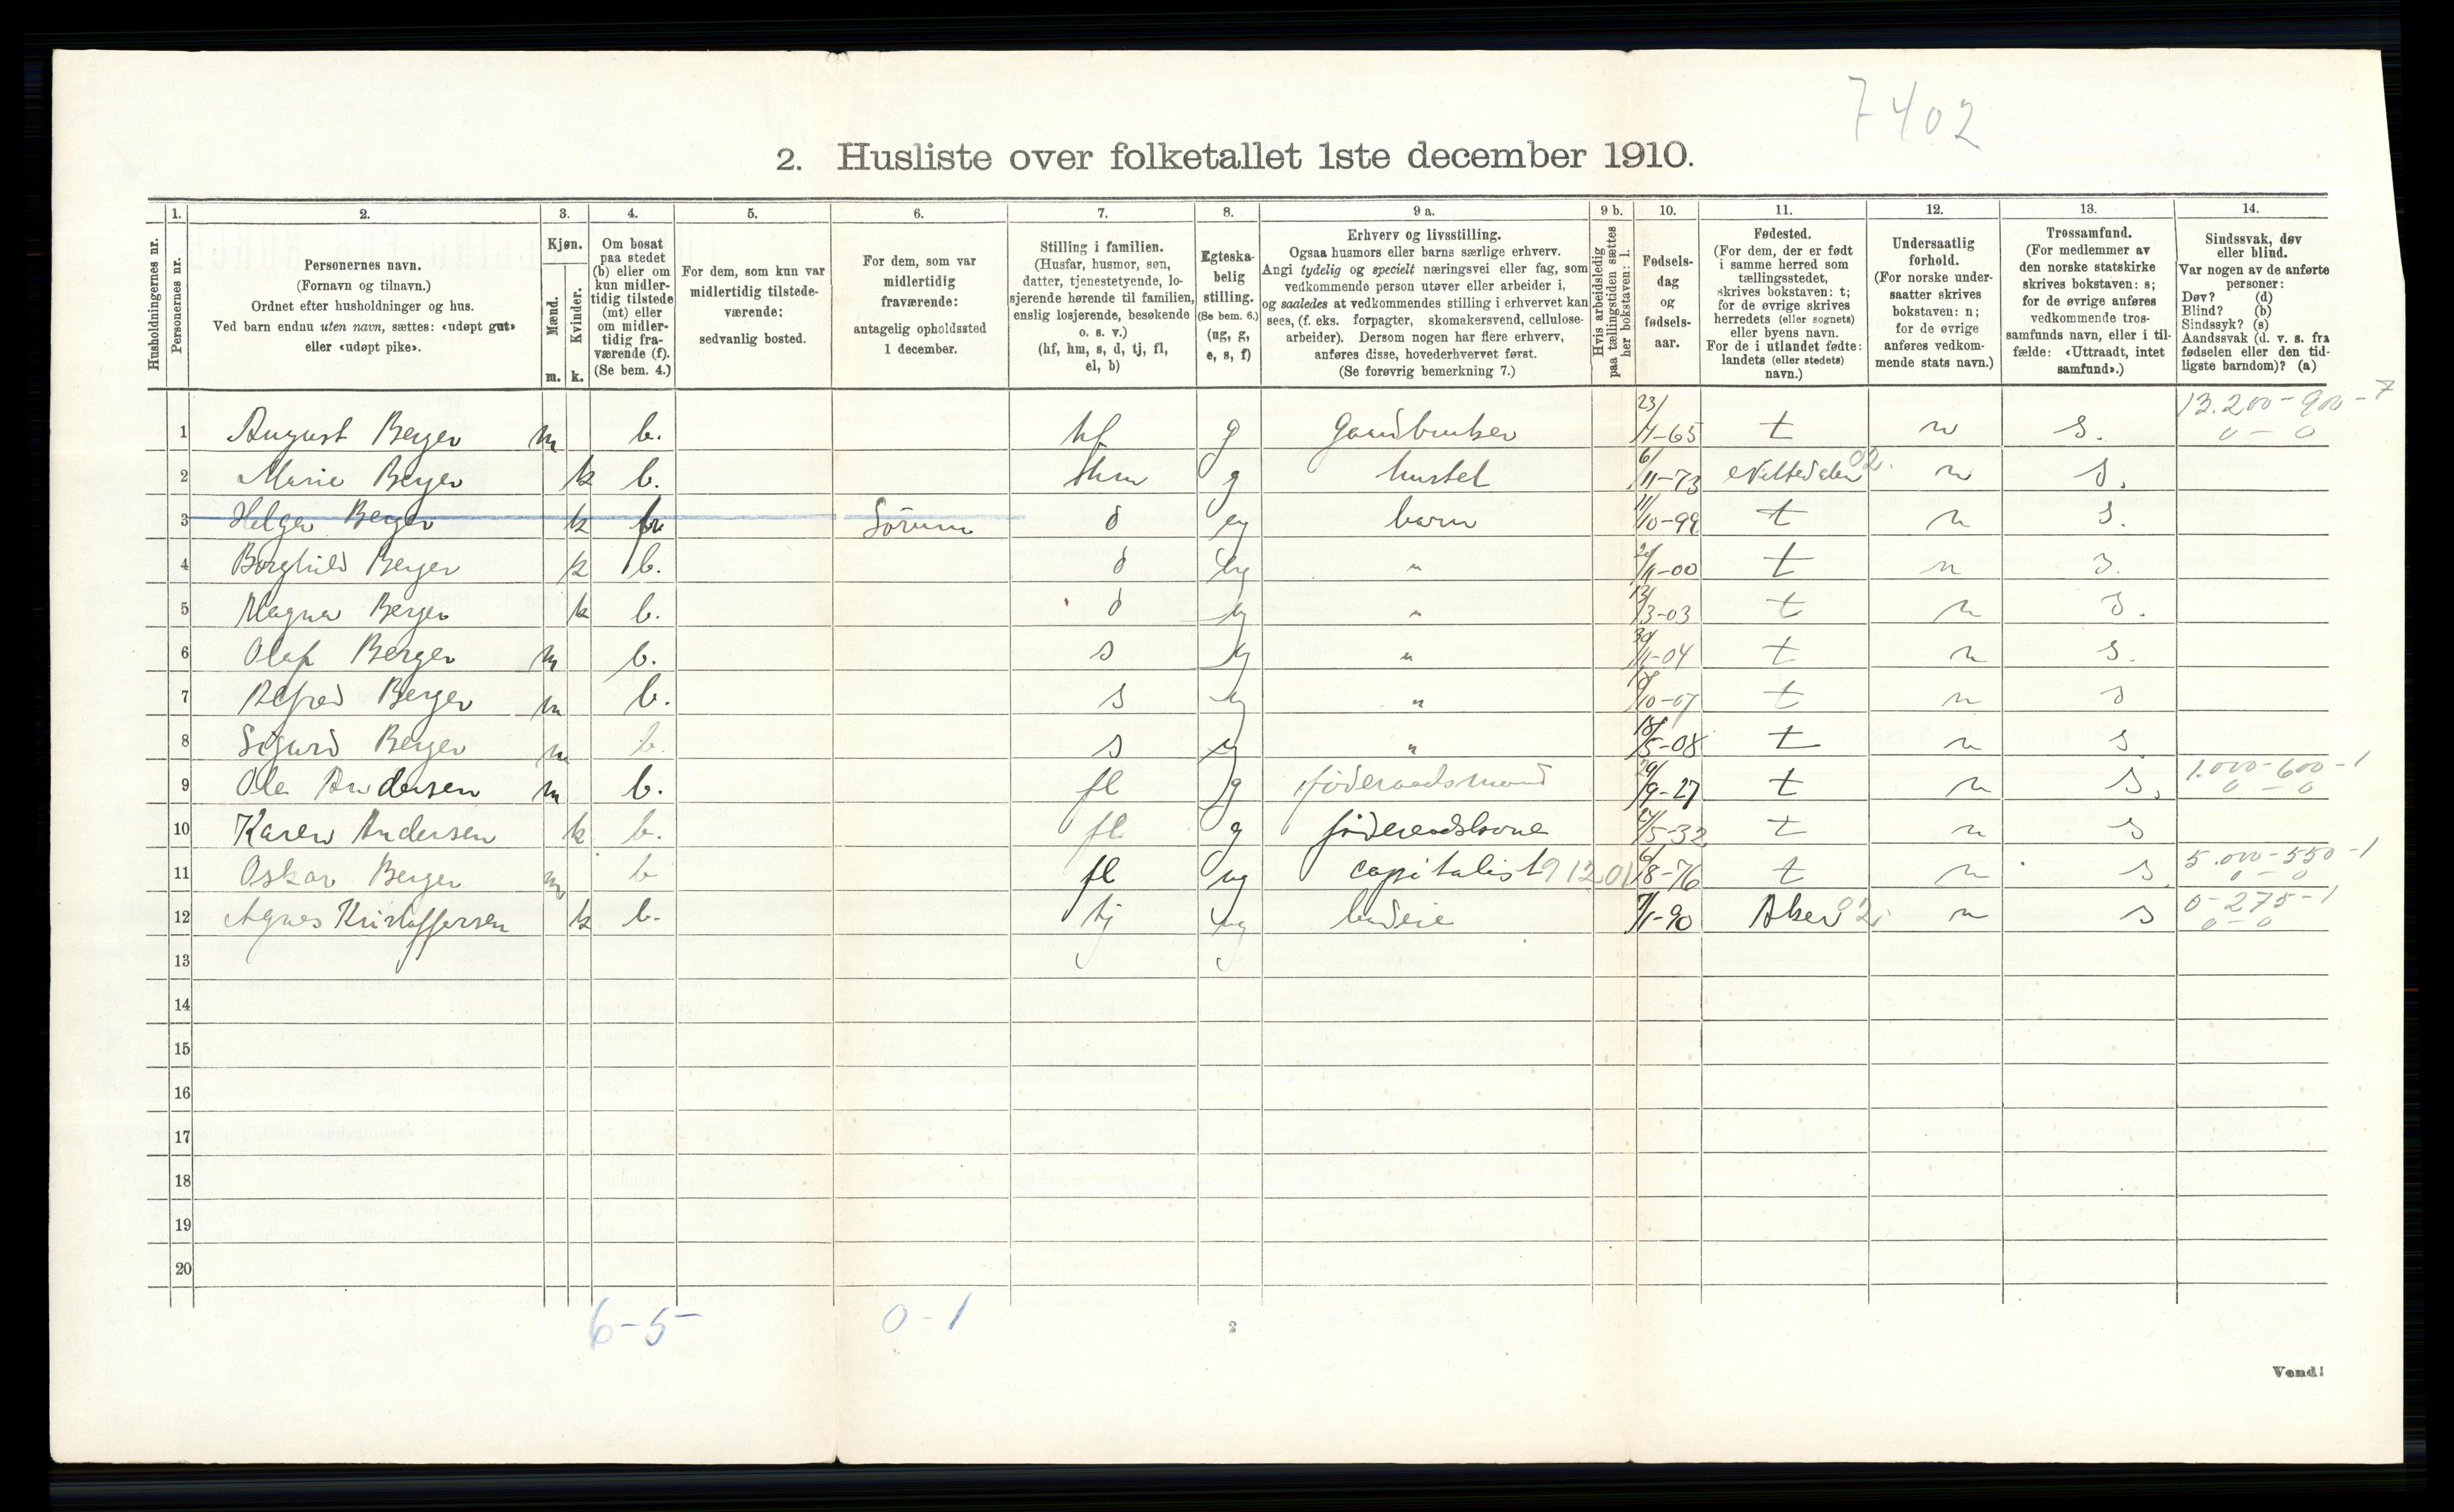 7402
2. Husliste over folketallet 1ste december 1910.
Husholdningernes nr.
1.
Personernes nr.
2.
Personernes navn.
(Fornavn og tilnavn.)
Ordnet efter husholdninger og hus.
Ved barn endnu uten navn, sættes: «udøpt gut»
eller «udøpt pike».
3.
Kjøn.
Mænd.
Kvinder.
m. k.
4.
Om bosat
paa stedet
(b) eller om
kun midler-
tidig tilstede
(mt) eller
om midler-
tidig fra-
værende (f).
(Se bem. 4.)
5.
For dem, som kun var
midlertidig tilstede-
værende:
sedvanlig bosted.
6.
For dem, som var
midlertidig
fraværende:
antagelig opholdssted
1 december.
7.
Stilling i familien.
(Husfar, husmor, søn,
datter, tjenestetyende, lo-
sjerende hørende til familien,
enslig losjerende, besøkende
o. s. v.)
(hf, hm, s, d, tj, fl,
el, b)
8.
Egteska-
belig
stilling.
(Se bem. 6.)
(ug, g,
e, s, f)
9 a.
Erhverv og livsstilling.
Ogsaa husmors eller barns særlige erhverv.
Angi tydelig og specielt næringsvei eller fag, som
vedkommende person utøver eller arbeider i,
og saaledes at vedkommendes stilling i erhvervet kan
sees, (f. eks. forpagter, skomakersvend, cellulose-
arbeider). Dersom nogen har flere erhverv,
anføres disse, hovederhvervet først.
(Se forøvrig bemerkning 7.)
9 b.
Hvis arbeidsledig
paa tællingstiden sættes
her bokstaven: l.
10.
Fødsels-
dag
og
fødsels-
aar.
11.
Fødested.
(For dem, der er født
i samme herred som
tællingsstedet,
skrives bokstaven: t;
for de øvrige skrives
herredets (eller sognets)
eller byens navn.
For de i utlandet fødte:
landets (eller stedets)
navn.)
12.
Undersaatlig
forhold.
(For norske under-
saatter skrives
bokstaven: n;
for de øvrige
anføres vedkom-
mende stats navn.)
13.
Trossamfund.
(For medlemmer av
den norske statskirke
skrives bokstaven: s;
for de øvrige anføres
vedkommende tros-
samfunds navn, eller i til-
fælde: «Uttraadt, intet
samfund».)
14.
Sindssvak, døv
eller blind.
Var nogen av de anførte
personer:
Døv? (d)
Blind? (b)
Sindssyk? (s)
Aandssvak (d. v. s. fra
fødselen eller den tid-
ligste barndom)? (a)
1 August Berger m b. hf g Gaardbruker 23/4-65 t n s. 13.200-900-7
0 - 0
2 Marie Berger k b. hm g hustel 6/11-73 Nittedalen 02. n s.
3 Helga Berger k Sörum d ug barn 11/10-99 t n s.
4 Borghild Berger k b. d ug " /11-00 t n s.
5 Magna Berger k b. d ug " 13/3-03 t n s.
6 Olaf Berger m b. s ug " 30/11-04 t n s.
7 Alfred Berger m b. s ug " /10-07 t n s
8 Sigurd Berger m b. s ug " 18/5-08 t n s
9 Ole Andersen m b. fl g föderaadsmand 29/9-27 t n s. 1.000-600-1
0 - 0
10 Karen Andersen k b. fl g föderaadskone /5-32 t n s
11 Oskar Berger m b fl ug capitalist 91201 6/8-76 t n s. 5.000-550-1
0 - 0
12 Agnes Kristoffersen k b. tj ug budeie 7/1-90 Aker 02. n s 0-275-1
0 - 0
13
14
15
16
17
18
19
20
6-5 0-1
2
Vend!